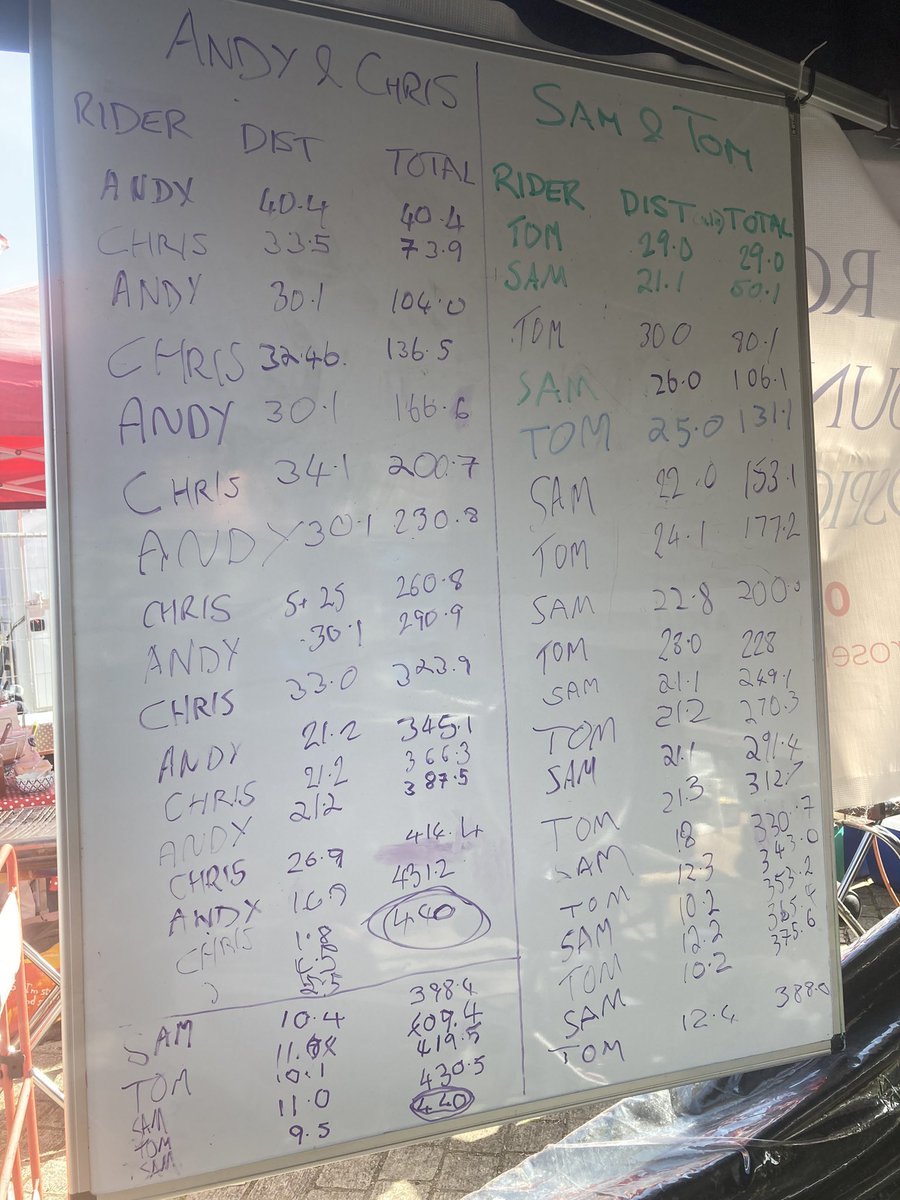 ANDY & CHRIS
RIDER DIST TOTAL
ANDY 40.4 40.4
CHRIS 33.5 73.9
ANDY 30.1 104.0
CHRIS 32.46. 136.5
ANDY 30.1 166.6
CHRIS 34.1 200.7
ANDY 30.1 230.8
CHRIS 5+25 260.8
ANDY 30.1 290.9
CHRIS 33.0 323.9
ANDY 21.2 345.1
CHRIS 21.2 366.3
ANDY 21.2 387.5
CHRIS 26.9 414.4
ANDY 16.9 431.2
CHRIS 1.8 440
5.5
SAM & TOM
RIDER DIST TOTAL
TOM 29.0 29.0
SAM 21.1 50.1
TOM 30.0 80.1
SAM 26.0 106.1
TOM 25.0 131.1
SAM 22.0 153.1
TOM 24.1 177.2
SAM 22.8 200.0
TOM 28.0 228
SAM 21.1 249.1
TOM 21.2 270.3
SAM 21.1 291.4
TOM 21.3 312.7
SAM 18 330.7
TOM 12.3 343.0
SAM 10.2 353.2
TOM 12.2 365.4
SAM 10.2 375.6
TOM 12.4 388.0
SAM 10.4 398.4
TOM 409.4
SAM 10.1 419.5
TOM 11.0 430.5
SAM 9.5 440